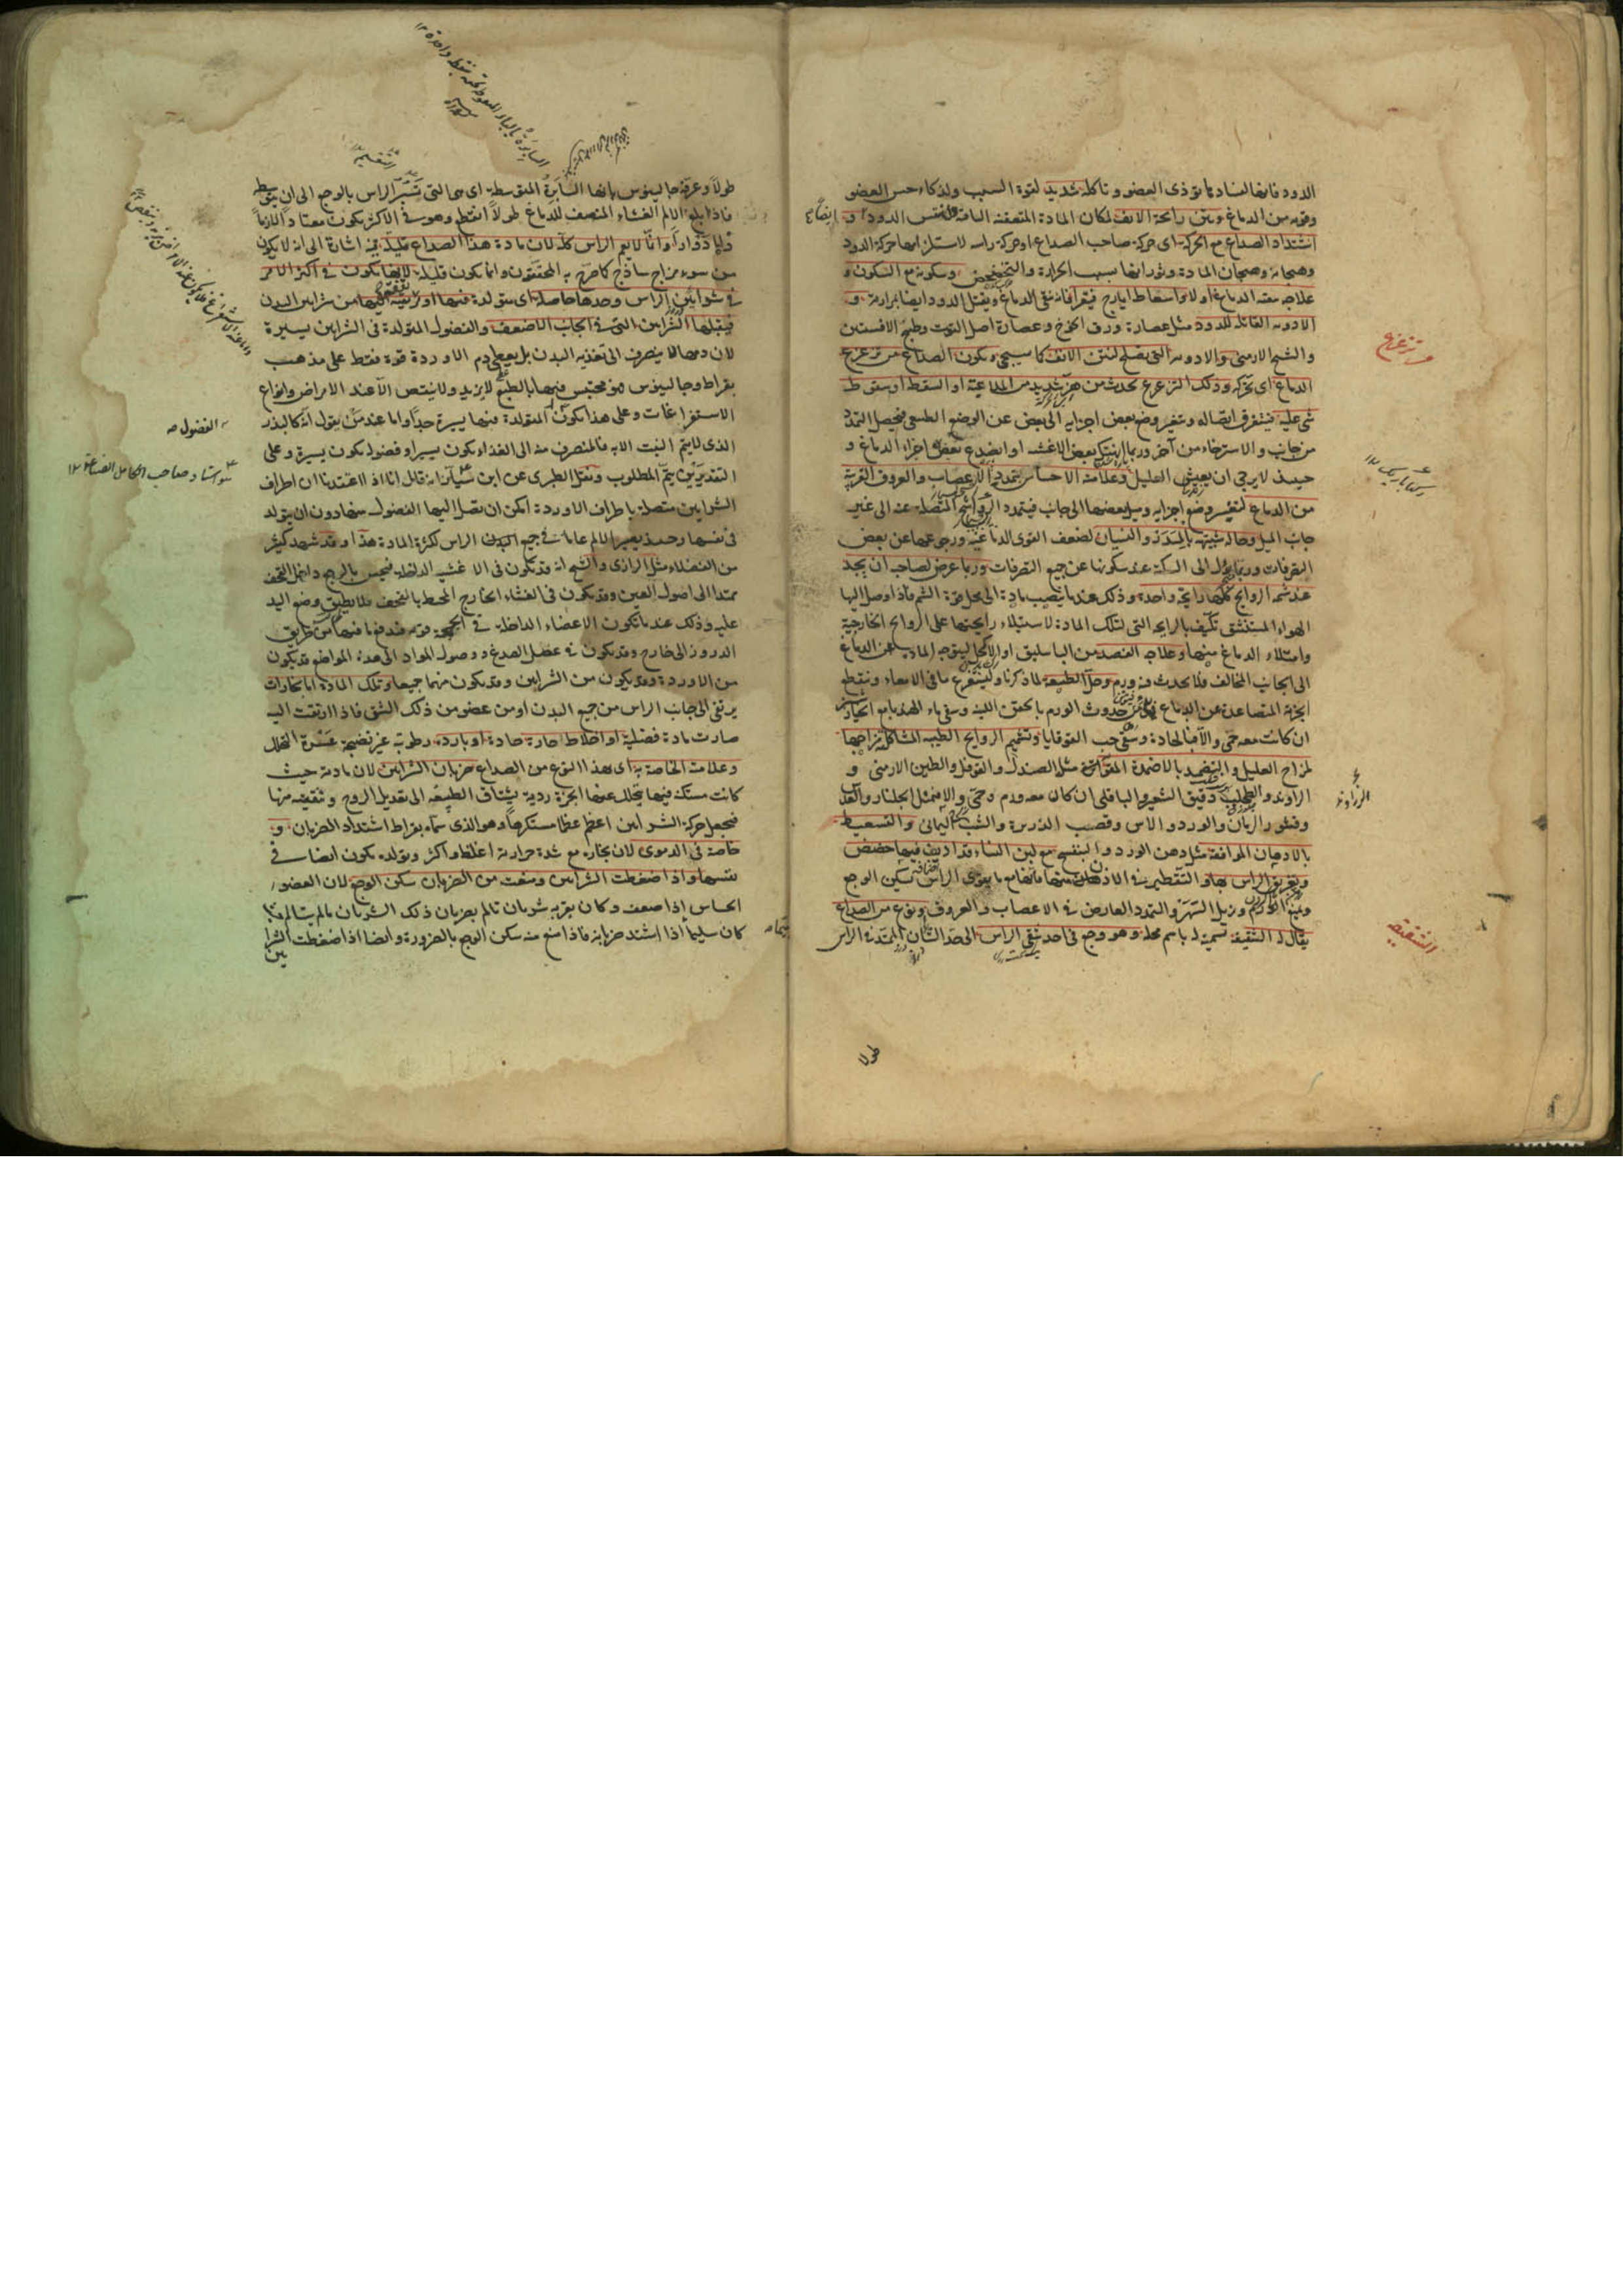 الدود فانها لفسادها تؤذى العضو وتاكله شديد لقوة السبب ولذكاء حس العضو
وقربه من الدماغ ونتن رائحة الانف لمكان المادة المتعفنة الباقية ولنفس الدود ايضاً و
اشتداد الصداع مع الحركة اى حركة صاحب الصداع او حركة راسه لاستلزامها حركة الدود
وهيجانه وهيجان المادة وثورانها بسبب الحرارة والتخضخض وسكونه مع السكون و
علاجه تنقية الدماغ اولا واسعاط ايارج فيقرا فانه ينقى الدماغ ويقتل الدود ايضا بمرارته و
الادوية القاتلة للدود مثل عصارة ورق الخوخ وعصارة اصل التوت وطبيخ الافسنتين
والشيح الارمنى والادوية التى تصلح لنتن الانف كما سيجىء ويكون الصداع من تزعزع
الدماغ اى تحركه وذلك التزعزع يحدث من هز شديد من اللاعبة او السقطة او سقوط
شىء عليه فيتفرق اتصاله وتغير وضع بعض اجزايه الى بعض عن الوضع الطبيعى فيحصل التمدد
من جانب والاسترخاء من آخر وربما انهتك بعض الاغشية او انصدع بعض اجزاء الدماغ و
حينئذ لا يرجى ان يعيش العليل وعلامته الاحساس بتمدد الاعصاب والعروق القريبة
من الدماغ لتغير وضع اجزايه وميل بعضها الى جانب فيتمدد المتصلة عنه الى غير
جانب الميل وحالة شبيهة بالسدر والنسيان لضعف القوى الدماغية ورجوعها عن بعض
التصرفات وربما يؤل الى السكتة عند سكونها عن جميع التصرفات وربما عرض لصاحبه ان يجد
عند شمه الروايح كلها رايحة واحدة وذلك عندما ينصب مادة الى محل قوة الشم فاذا وصل اليها
الهواء المستنشق تكيف بالرايحة التى لتلك المادة لاستيلاء رايحتها على الروايح الخارجية
وامتلاء الدماغ منها وعلاجه الفصد من الباسليق او الاكحل ليتوجه المادة عن الدماغ
الى الجانب المخالف فلا يحدث فيه ورم وحل الطبيعة لما ذكرنا وليستفرغ ما فى الامعاء وينقطع
ابخرته المتصاعدة عن الدماغ حدوث الورم بالحقن اللينة وسقى ماء الهندبا مع الخيارشنبر
ان كانت معه حمى والا فبالحادة وسقى حب القوقايا وتشميم الروايح الطيبة المشاكلة مزاجها
لمزاج العليل والتضميد بالاضمدة المقوية مثل الصندل والفوفل والطين الارمنى و
الراوند والطحلب دقيق الشعير والباقلى ان كان معه ورم وحمى والا فمثل الجلنار والعدس
وقشور الرمان والورد والاس وقصب الذريرة والشب اليمانى والتسعيط
بالادهان الموافقة مثل دهن الورد والبنفسج مع لبن النساء قد اديف فيها حضض
وتعريق الراس بها والتقطير فى الاذن منها فانها مع ما يقوى الراس يسكن الوجع
ويمنع الورم ويزيل السهر والتمدد العارض فى الاعصاب والعروق ونوع من الصداع
يقال له الشقيقة تسمية له باسم محله وهو وجع فى احد شقى الراس الى حد الشان الممتد فى الراس
طولا
تزعزع
الشقيقة
طولا وعرفه جالينوس بانها السابرة المتوسطة اى هى التى تسبر الراس بالوجع الى ان يتوسطه
فاذا بلغ الالم الغشاء المنصف للدماغ طولاً انقطع وهو فى الاكثر يكون معتادا لازماً
ذا ادوار وانما لا يعم الراس كله لان مادة هذا الصداع قليلة فيه اشارة الى انه لا يكون
من سوء مزاج ساذج كما صرح به المحققون وانما يكون قليلة لانها تكون فى اكثر الامر
فى شرايين الراس وحدها حاصلة اى متولدة فيها او مرتقية اليها من شرايين البدن
فيقبلها الشرايين التى فى الجانب الاضعف والفضول المتولدة فى الشرايين يسيرة
لان دمها لا ينصرف الى تغذية البدن بل يعطى دم الاوردة قوة فقط على مذهب
بقراط وجالينوس فهو محتبس فيها بالطبع لا يزيد ولا ينقص الا عند الامراض وانواع
الاستفراغات وعلى هذا يكون المتولدة فيها يسيرة جدا واما عند من يقول انه كالبذر
الذى لا يتم النبت الا به فالمنصرف منه الى الغذاء يكون يسيرا وفضوله يكون يسيرة وعلى
التقديرين يتم المطلوب ونقل الطبرى عن ابن سيار انه قال انا اذا اعتقدنا ان اطراف
الشرايين متصلة باطراف الاوردة امكن ان تصل اليها الفضول منها دون ان يتولد
فى نفسها وحينئذ يصير الالم عاما فى جميع الراس لكثرة المادة هذا وقد شهد كثير
من الفضلاء مثل الرازى والشيخ انه قد يكون فى الاغشية الداخلة فيحس بالوجع داخل القحف
ممتدا الى اصول العين وقد يكون فى الغشاء الخارج المحيط بالقحف فلا يطيق وضع اليد
عليه وذلك عندما تكون الاعضاء الداخلة فى الجمجمة قوية فتدفع ما فيها من طريق
الدروز الى خارج وقد يكون فى عضل الصدغ ووصول المواد الى هذه المواضع قد يكون
من الاوردة وقد يكون من الشرايين وقد يكون منهما جميعا وتلك المادة اما بخارات
يرتقى الى جانب الراس من جميع البدن او من عضو من ذلك الشق فاذا ارتقت اليه
صارت مادة فضلية او اخلاط حارة حادة او باردة رطوبة غير نضيجة عسرة التحلل
وعلامته الخاصة به اى بهذا النوع من الصداع ضربان الشرايين لان مادته حيث
كانت مستكنة فيها يتحلل عنها ابخرة ردية يشتاق الطبيعة الى تعديل الروح وتنقيته منها
فيجعل حركة الشرايين اعظم عظما مستكرها وهو الذى سماه بقراط اشتداد الضربان و
خاصة فى الدموى لان بخاره مع شدة حرارته اغلظ واكثر وتولده يكون ايضا فى
نفسها واذا ضغطت الشرايين ومنعت من الضربان سكن الوجع لان العضو
الحساس اذا ضعف وكان بقربه شريان تالم بضربان ذلك الشريان ما لم يتالم به
كان سليما اذا اشتد ضربانه فاذا منع منه سكن الوجع بالضرورة وايضا اذا ضغطت الشرايين
الفضول صح